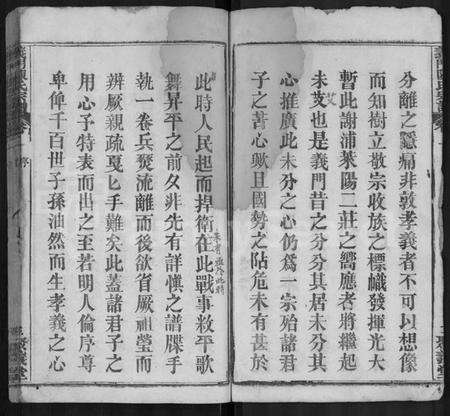 分離之隱痛非敦孝義者不可以想像
而知樹立敬宗收族之標幟發揮光大
暫此謝浦萊陽二莊之嚮應者將繼起
未艾也是義門昔之分分其居未分其
心推廣此未分之心仍為一宗殆諸君
子之苦心歟且國勢之阽危未有甚於
此時人民起而捍衛在此戰事救平歌
舞昇平之前夕非先有詳慎之譜牒手
執一卷兵燹流離而後欲省厥祖塋而
辨厥親疏戛乎難矣此蓋諸君子之
用心予特表而出之至若明人倫序尊
卑俾千百世子孫油然而生孝義之心